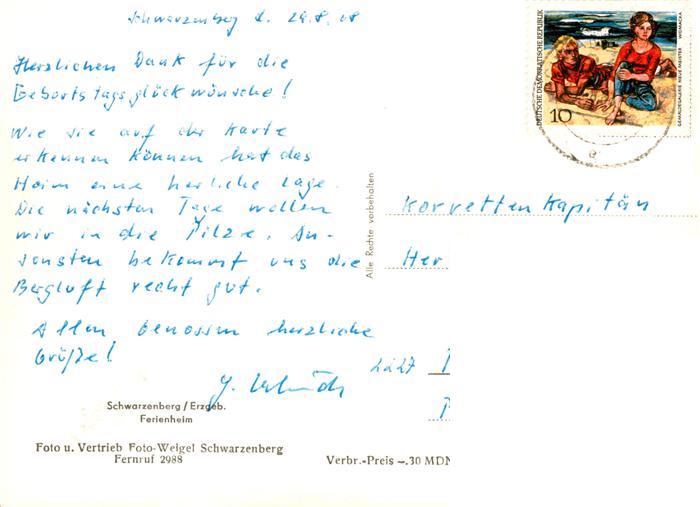 Schwarzenberg d. 29.8.68
Herzlichen Dank für die
Geburtstagsglückwünsche!
Wie sie auf der Karte
erkennen können hat das
Heim eine herliche Lage.
Die nächsten Tage wollen
wir in die Pilze. An-
sonsten bekommt uns die
Bergluft recht gut.
Allen Genossen herzliche
Grüße!
Schwarzenberg / Erzgeb.
Ferienheim
Foto u. Vertrieb Foto-Weigel Schwarzenberg
Fernruf 2988
Verbr.-Preis –.30 MDN
Alle Rechte vorbehalten
DEUTSCHE DEMOKRATISCHE REPUBLIK
10
GEMÄLDEGALERIE NEUE MEISTER WOMACKA
Korvettenkapitän
Her
2227